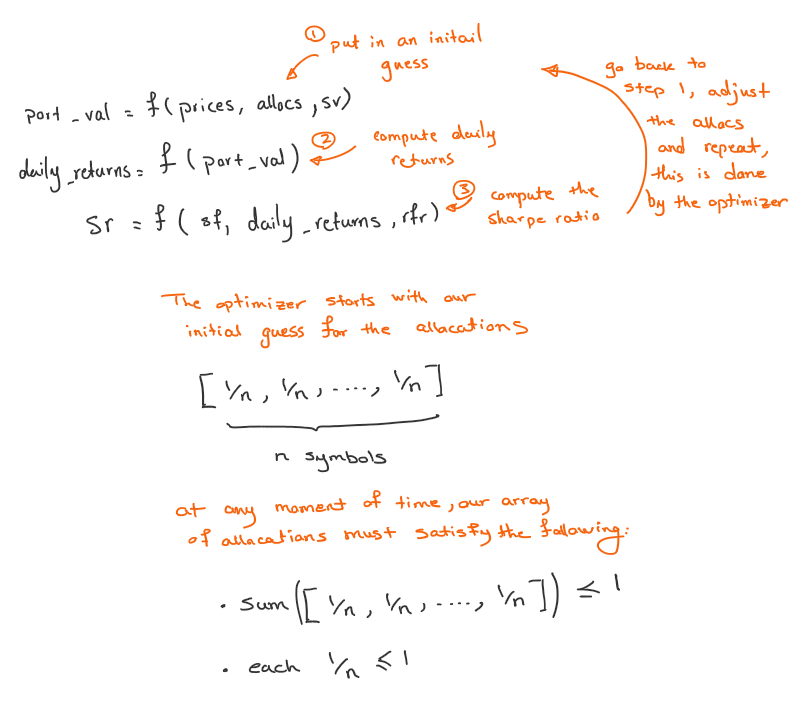 ① put in an initail
guess
port_val = f(prices, allocs, sv)
② compute daily
returns
daily_returns = f (port_val)
③ compute the
sharpe ratio
sr = f ( sf, daily_returns, rfr)
go back to
step 1, adjust
the allacs
and repeat,
this is dane
by the optimizer
The optimizer starts with our
initial guess for the allacations
[ 1/n, 1/n, ...., 1/n ]
n symbols
at any moment of time, our array
of allacatians must satisfy the fallawing:
• sum([ 1/n, 1/n, ...., 1/n ]) ≤ 1
• each 1/n ≤ 1